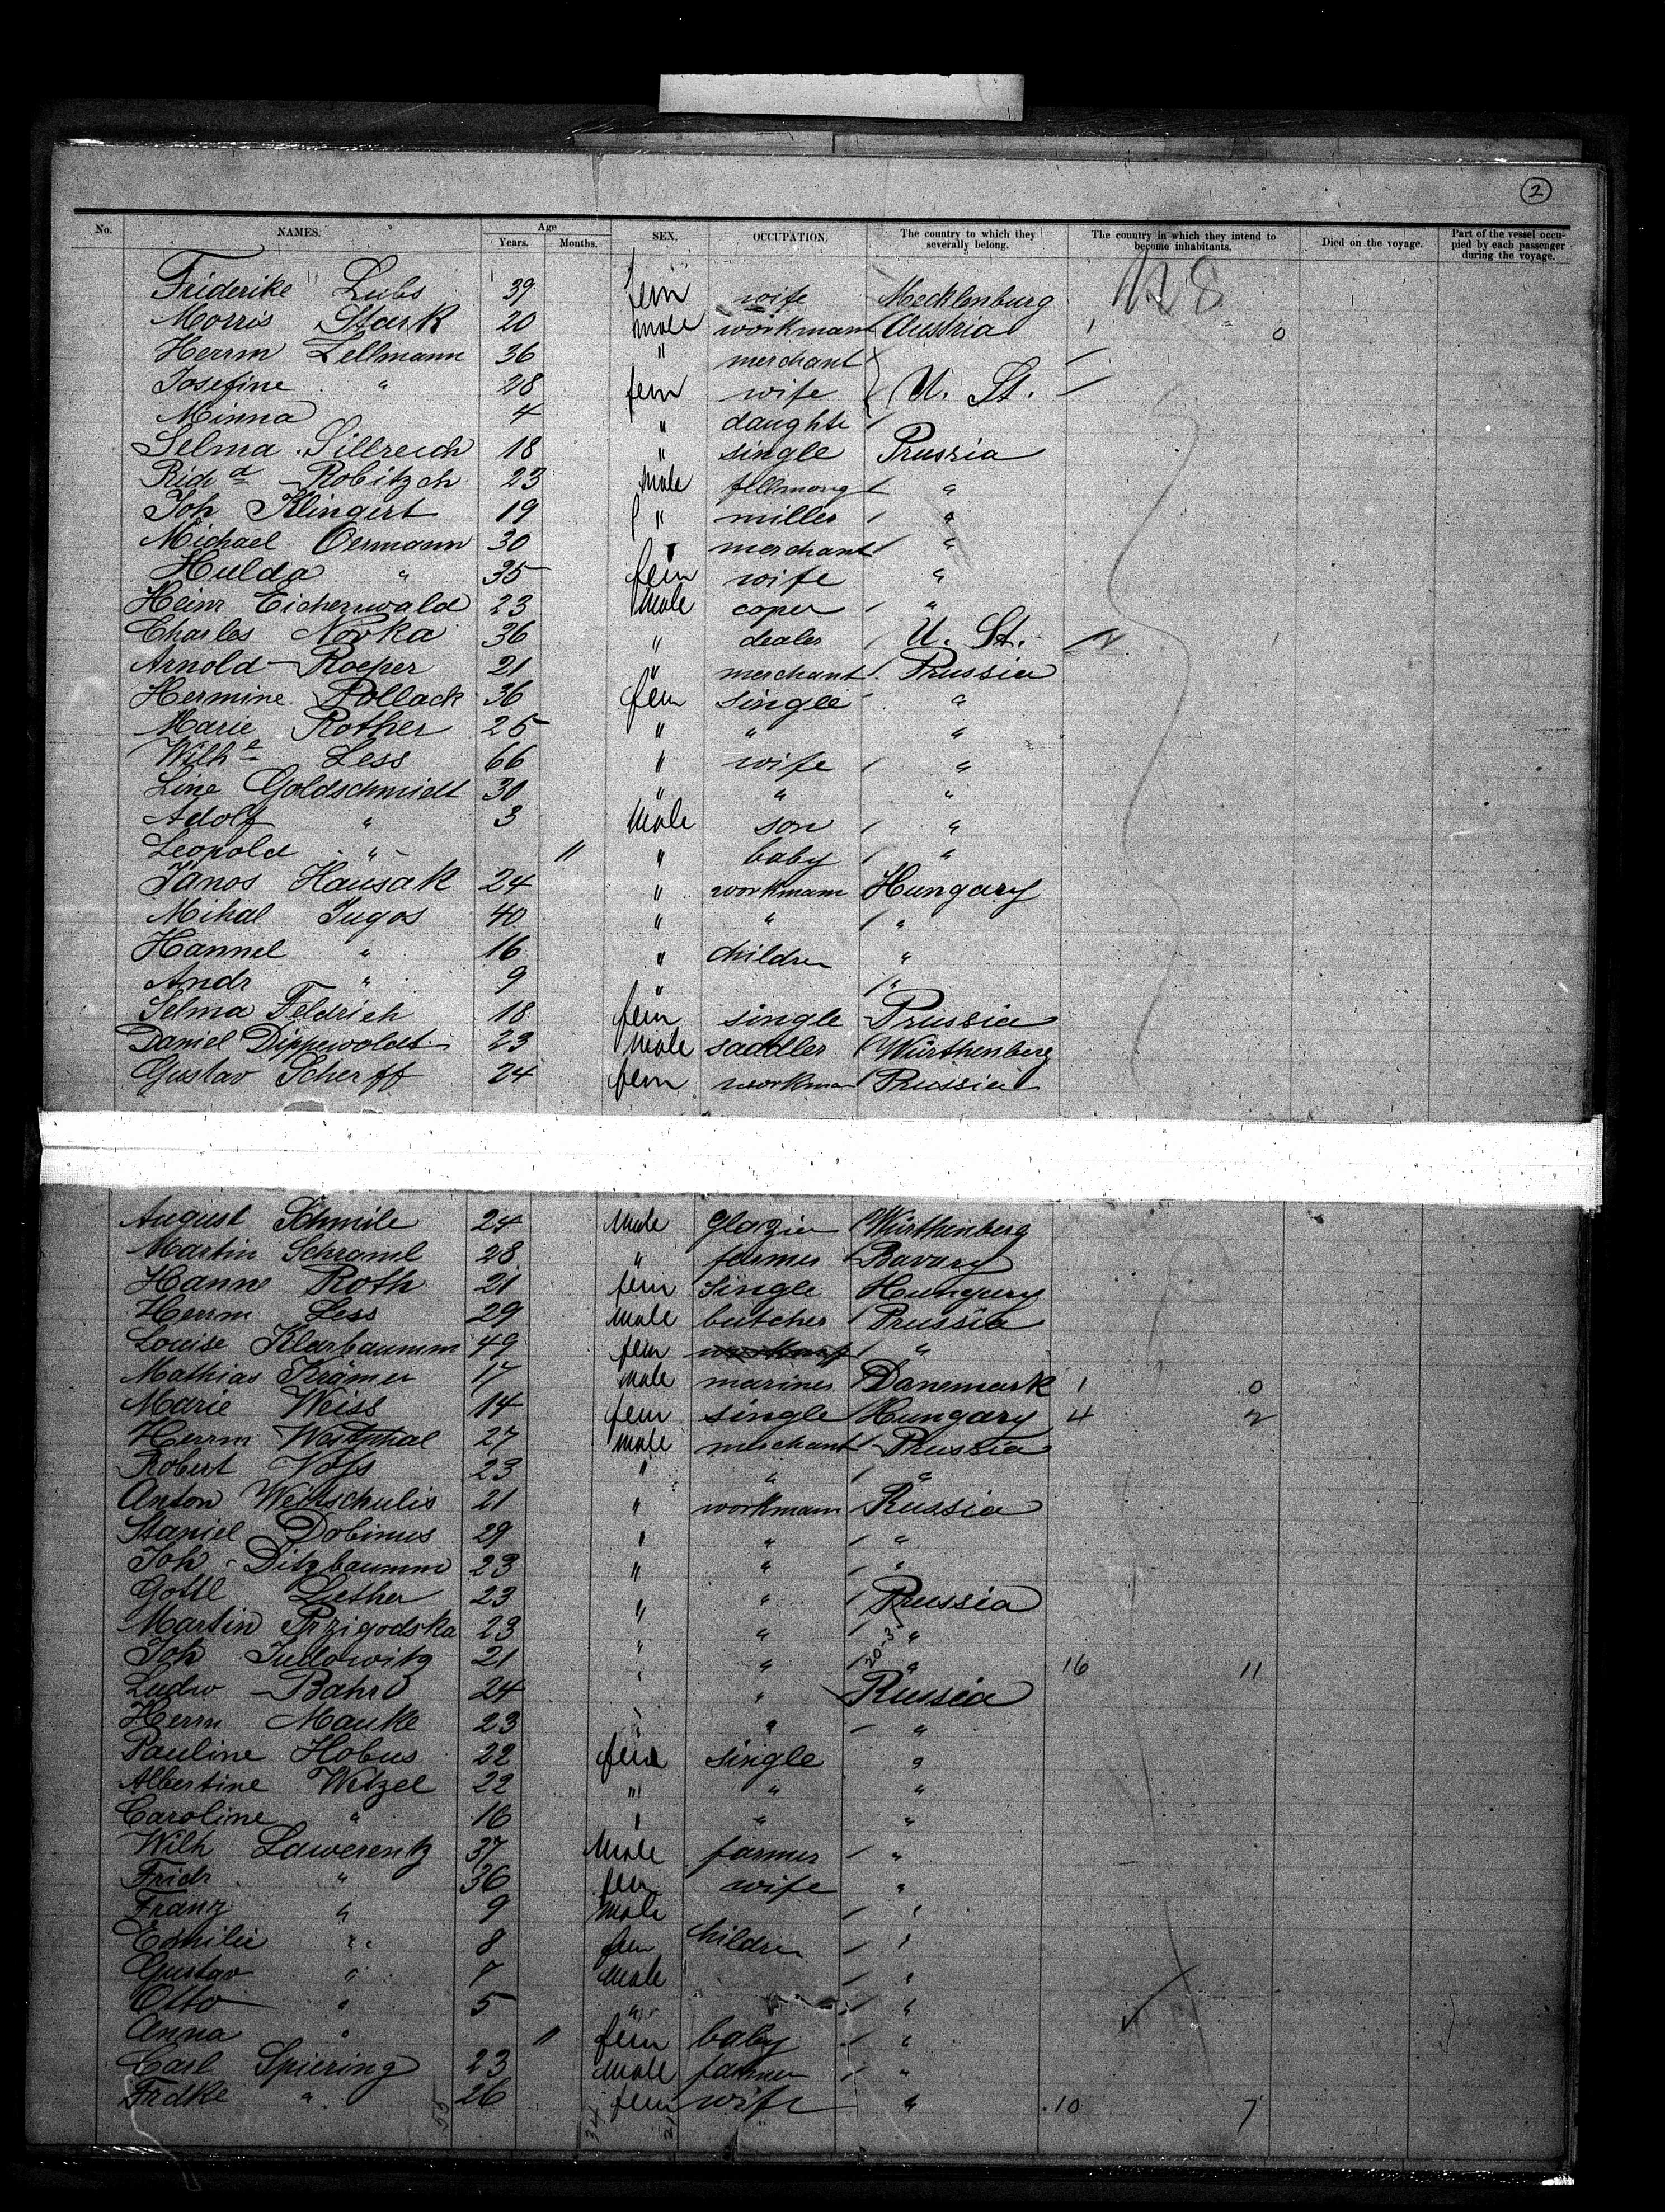 2
No. NAMES. Age Years. Months. SEX. OCCUPATION. The country to which they severally belong. The country in which they intend to become inhabitants. Died on the voyage. Part of the vessel occupied by each passenger during the voyage.
Friderike Lubs 39 fem wife Mecklenburg
Morris Stark 20 male workmann Austria 1 0
Herrm Lellmann 36 " merchant
Josefine " 28 fem wife U. St.
Minna 4 " daughte
Selma Sillreich 18 " single Prussia
Richd Robitzch 23 male fellmong "
Joh Klingert 19 " miller "
Michael Oermann 30 " merchant "
Hulda " 35 fem wife "
Heinr Eichenwald 23 male coper "
Charles Novka 36 " dealer U. St.
Arnold Roeper 21 " merchant Prussia
Hermine Pollack 36 fem single "
Marie Rother 25 " " "
Wilhe Less 66 " wife "
Line Goldschmidt 30 " " "
Adolf " 3 male son "
Leopold " 11 " baby "
Janos Hausak 24 " workmann Hungary
Mihal Jugos 40 " " "
Hannel " 16 " children "
Andr " 9 " "
Selma Feldrich 18 fem single Prussia
Daniel Dippewoldt 23 male saddler Würthenberg
Gustav Scherff 24 fem workman Prussia
August Schmile 24 male glazier Würthenberg
Martin Schraml 28 " farmer Bavary
Hanne Roth 21 fem single Hungary
Herrm Less 29 male butcher Prussia
Louise Klarbaumm 49 fem "
Mathias Krämer 17 male mariner Danemark 1 0
Marie Weiss 14 fem single Hungary 4 2
Herrm Westphal 27 male merchant Prussia
Robert Voss 23 " " "
Anton Weitschulis 21 " workmann Russia
Staniel Dobimus 29 " " "
Joh Ditzbaumm 23 " " "
Gottl Luther 23 " " Prussia
Martin Przigodska 23 " " "
Joh Judowitz 21 " " " 20-35 16 11
Ludw Bahr 24 " " Russia
Herrn Manke 23 " " "
Pauline Hobus 22 fem single "
Albertine Wetzel 22 " " "
Caroline " 16 " " "
Wilh Lawerentz 37 male farmer "
Fridr " 36 fem wife "
Franz " 9 male "
Emilie " 8 fem children "
Gustav " 7 male "
Otto " 5 " "
Anna " 11 fem baby "
Carl Spiering 23 male farmer "
Frdke " 26 fem wife " 10 7
55 34 21